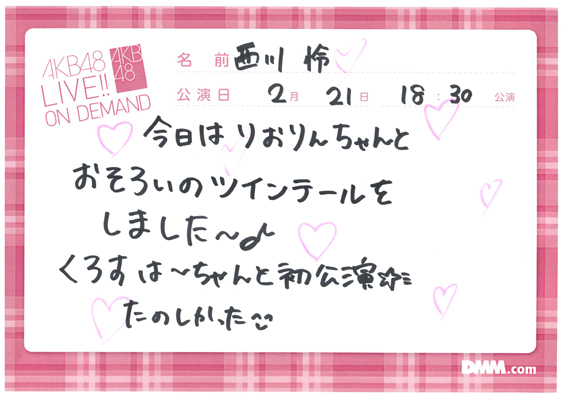 AKB48
LIVE!!
ON DEMAND
AKB
48
名前 西川 怜
公演日 2月 21日 18:30 公演
今日はりおりんちゃんと
おそろいのツインテールを
しました〜♪
くろすは〜ちゃんと初公演☆ミ
たのしかった
DMM.com